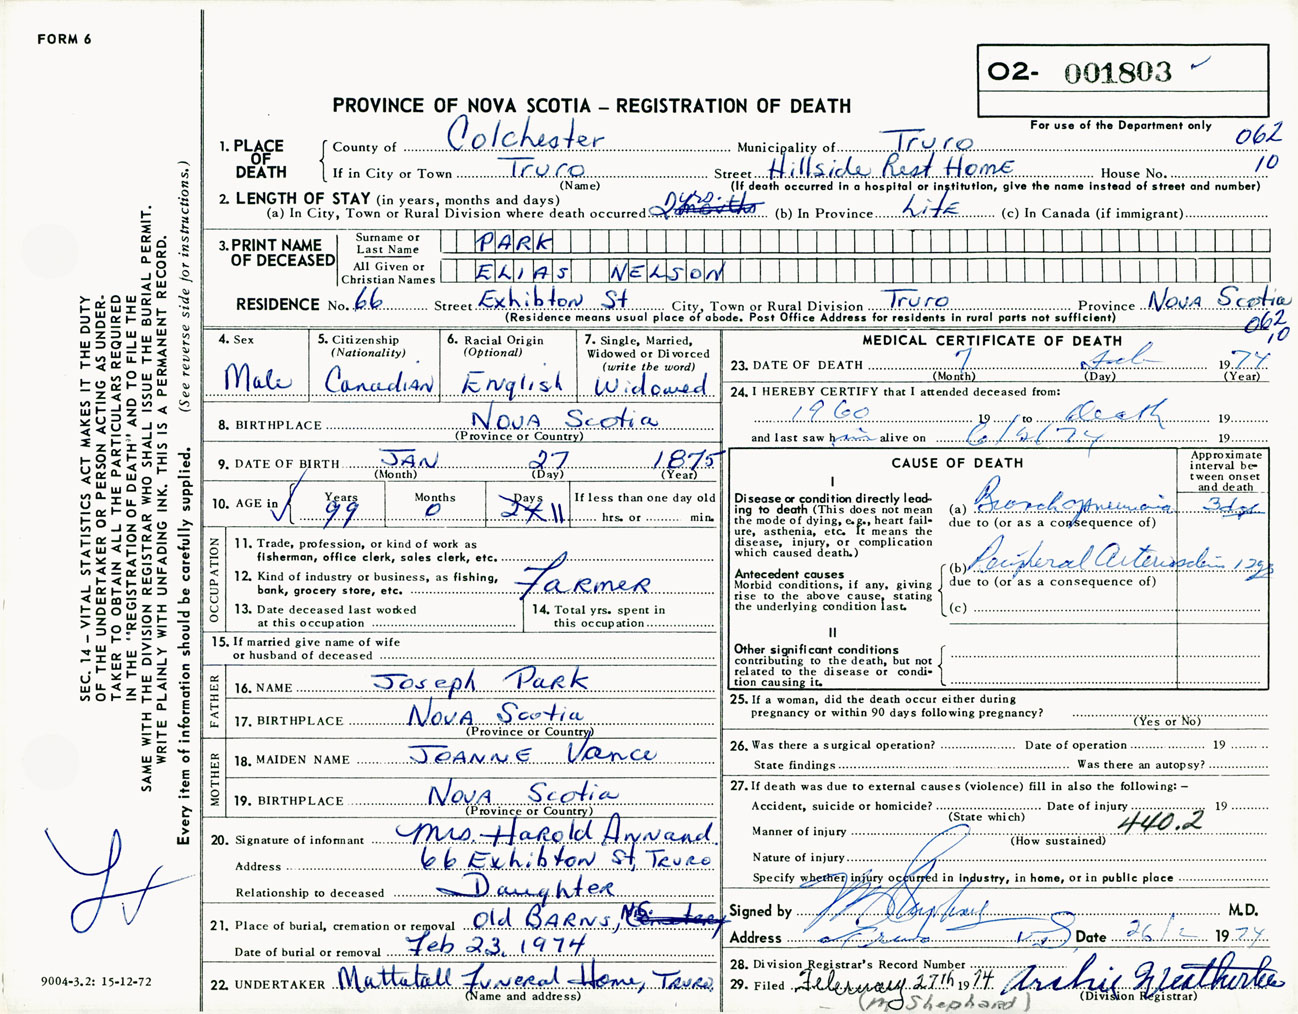 FORM 6
O2- 001803
PROVINCE OF NOVA SCOTIA – REGISTRATION OF DEATH
For use of the Department only
062
10
1. PLACE OF DEATH
County of Colchester Municipality of Truro
If in City or Town Truro Street Hillside Rest Home House No.
(Name) (If death occurred in a hospital or institution, give the name instead of street and number)
2. LENGTH OF STAY (in years, months and days)
(a) In City, Town or Rural Division where death occurred 2 yrs. months (b) In Province Life (c) In Canada (if immigrant)
3. PRINT NAME OF DECEASED
Surname or Last Name PARK
All Given or Christian Names ELIAS NELSON
RESIDENCE No. 66 Street Exhibton St City, Town or Rural Division Truro Province Nova Scotia
(Residence means usual place of abode. Post Office Address for residents in rural parts not sufficient)
062
10
4. Sex
Male
5. Citizenship
(Nationality)
Canadian
6. Racial Origin
(Optional)
English
7. Single, Married,
Widowed or Divorced
(write the word)
Widowed
8. BIRTHPLACE Nova Scotia
(Province or Country)
9. DATE OF BIRTH JAN 27 1875
(Month) (Day) (Year)
10. AGE in Years Months Days If less than one day old
99 0 11 hrs. or min.
OCCUPATION
11. Trade, profession, or kind of work as
fisherman, office clerk, sales clerk, etc.
12. Kind of industry or business, as fishing,
bank, grocery store, etc. Farmer
13. Date deceased last worked
at this occupation
14. Total yrs. spent in
this occupation
15. If married give name of wife
or husband of deceased
FATHER
16. NAME Joseph Park
17. BIRTHPLACE Nova Scotia
(Province or Country)
MOTHER
18. MAIDEN NAME JOANNE Vance
19. BIRTHPLACE Nova Scotia
(Province or Country)
20. Signature of informant Mrs. Harold Annand
Address 66 Exhibton St, Truro
Relationship to deceased Daughter
21. Place of burial, cremation or removal Old Barns, N.S. Cemetery
Date of burial or removal Feb 23, 1974
22. UNDERTAKER Mattatall Funeral Home, Truro.
(Name and address)
MEDICAL CERTIFICATE OF DEATH
23. DATE OF DEATH 7 Feb 1974
(Month) (Day) (Year)
24. I HEREBY CERTIFY that I attended deceased from:
1960 19 to death 19
and last saw him alive on 6/2/74 19
CAUSE OF DEATH
Approximate interval between onset and death
I
Disease or condition directly leading to death (This does not mean the mode of dying, e.g., heart failure, asthenia, etc. It means the disease, injury, or complication which caused death.)
(a) Bronchopneumonia 3 dys
due to (or as a consequence of)
Antecedent causes
Morbid conditions, if any, giving rise to the above cause, stating the underlying condition last.
(b) Peripheral
due to (or as a consequence of)
(c)
II
Other significant conditions
contributing to the death, but not related to the disease or condition causing it.
25. If a woman, did the death occur either during
pregnancy or within 90 days following pregnancy?
(Yes or No)
26. Was there a surgical operation? Date of operation 19
State findings Was there an autopsy?
27. If death was due to external causes (violence) fill in also the following: –
Accident, suicide or homicide? Date of injury 19
(State which)
Manner of injury 440.2
(How sustained)
Nature of injury
Specify whether injury occurred in industry, in home, or in public place
Signed by M.D.
Address Truro N.S. Date 26/2 1974
28. Division Registrar's Record Number
29. Filed February 27th 1974 Archie
(Division Registrar)
(M Shephard)
SEC. 14 – VITAL STATISTICS ACT MAKES IT THE DUTY
OF THE UNDERTAKER OR PERSON ACTING AS UNDER-
TAKER TO OBTAIN ALL THE PARTICULARS REQUIRED
IN THE "REGISTRATION OF DEATH" AND TO FILE THE
SAME WITH THE DIVISION REGISTRAR WHO SHALL ISSUE THE BURIAL PERMIT.
WRITE PLAINLY WITH UNFADING INK. THIS IS A PERMANENT RECORD.
Every item of information should be carefully supplied. (See reverse side for instructions.)
9004-3.2: 15-12-72